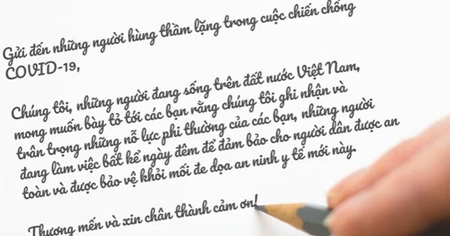 Gửi đến những người hùng thầm lặng trong cuộc chiến chống
COVID-19,
Chúng tôi, những người đang sống trên đất nước Việt Nam,
mong muốn bày tỏ tới các bạn rằng chúng tôi ghi nhận và
trân trọng những nỗ lực phi thường của các bạn, những người
đang làm việc bất kể ngày đêm để đảm bảo cho người dân được an
toàn và được bảo vệ khỏi mối đe dọa an ninh y tế mới này.
Thương mến và xin chân thành cảm ơn!